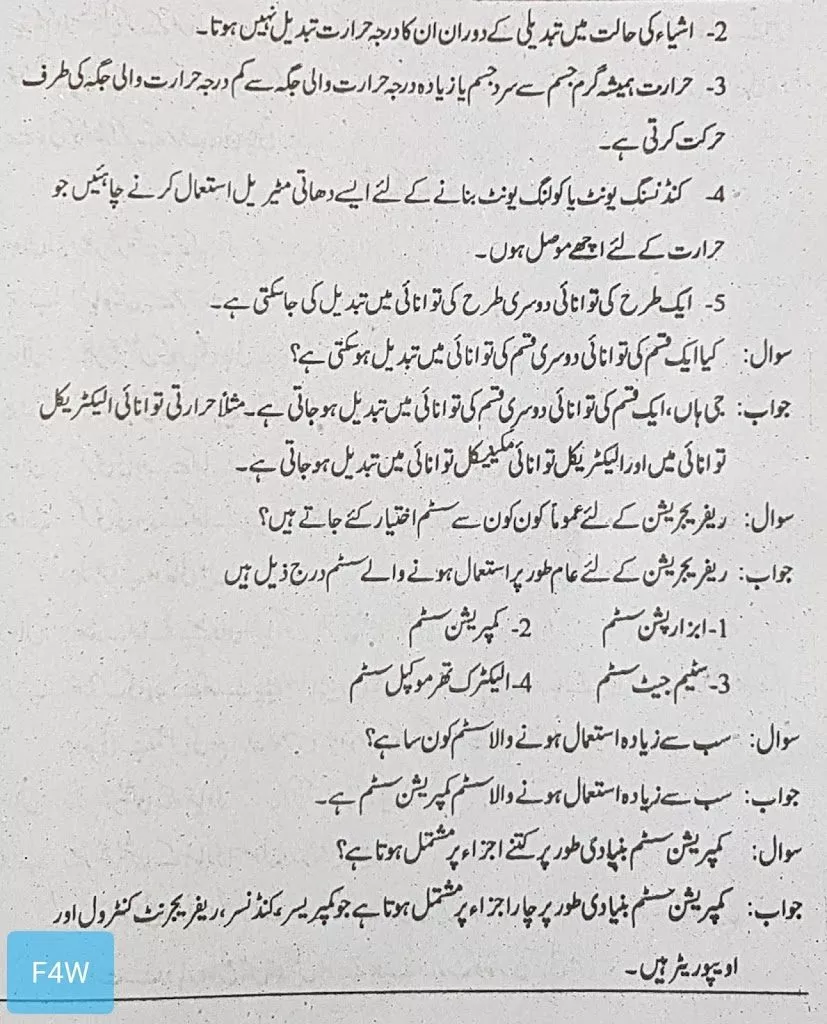 2- اشیاء کی حالت میں تبدیلی کے دوران ان کا درجہ حرارت تبدیل نہیں ہوتا۔
3- حرارت ہمیشہ گرم جسم سے سرد جسم یا زیادہ درجہ حرارت والی جگہ سے کم درجہ حرارت والی جگہ کی طرف
حرکت کرتی ہے۔
4- کنڈنسنگ یونٹ یا کولنگ یونٹ بنانے کے لئے ایسے دھاتی مٹیریل استعمال کرنے چاہئیں جو
حرارت کے لئے اچھے موصل ہوں۔
5- ایک طرح کی توانائی دوسری طرح کی توانائی میں تبدیل کی جاسکتی ہے۔
سوال: کیا ایک قسم کی توانائی دوسری قسم کی توانائی میں تبدیل ہوسکتی ہے؟
جواب: جی ہاں، ایک قسم کی توانائی دوسری قسم کی توانائی میں تبدیل ہوجاتی ہے۔ مثلاً حرارتی توانائی الیکٹریکل
توانائی میں اور الیکٹریکل توانائی مکینیکل توانائی میں تبدیل ہوجاتی ہے۔
سوال: ریفریجریشن کے لئے عموماً کون کون سے سسٹم اختیار کئے جاتے ہیں؟
جواب: ریفریجریشن کے لئے عام طور پر استعمال ہونے والے سسٹم درج ذیل ہیں
1- ابزارپشن سسٹم 2- کمپریشن سسٹم
3- سٹیم جیٹ سسٹم 4- الیکٹرک تھرموکپل سسٹم
سوال: سب سے زیادہ استعمال ہونے والا سسٹم کون سا ہے؟
جواب: سب سے زیادہ استعمال ہونے والا سسٹم کمپریشن سسٹم ہے۔
سوال: کمپریشن سسٹم بنیادی طور پر کتنے اجزاء پر مشتمل ہوتا ہے؟
جواب: کمپریشن سسٹم بنیادی طور پر چار اجزاء پر مشتمل ہوتا ہے جو کمپریسر، کنڈنسر، ریفریجرنٹ کنٹرول اور
اویپوریٹر ہیں۔
F4W